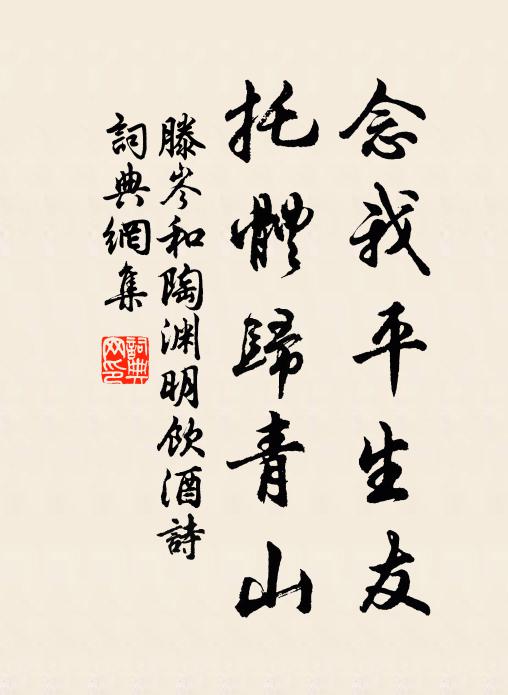 念我平生友
托體歸青山
滕岑和陶渊明飲酒詩
詞典網集
詞典網印